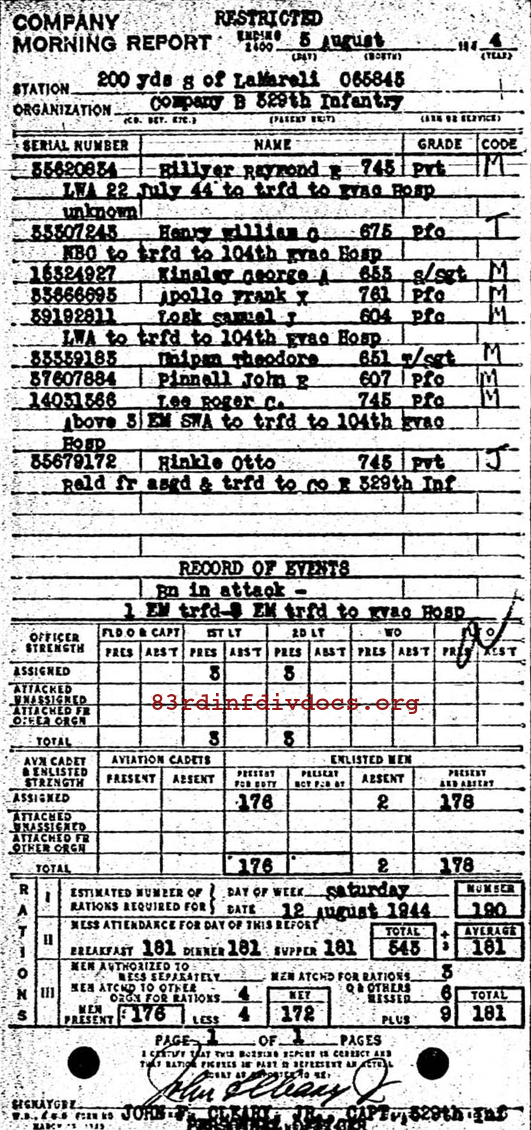 RESTRICTED
COMPANY
MORNING REPORT ENDING 2400 5 August 194 4
(DAY) (MONTH) (YEAR)
STATION 200 yds S of LaMareli 065845
ORGANIZATION Company B 329th Infantry
(CO. DET. ETC.) (PARENT UNIT) (ARM OR SERVICE)
SERIAL NUMBER NAME GRADE CODE
35620834 Hillyer Raymond E 745 Pvt M
LWA 22 July 44 to trfd to Evac Hosp
unknown
33507243 Henry William C 675 Pfc T
NBC to trfd to 104th Evac Hosp
16324927 Kinsley George A 653 S/Sgt M
33866695 Apollo Frank 761 Pfc M
39192811 Losk Samuel J 604 Pfc M
LWA to trfd to 104th Evac Hosp
33359183 Unipan Theodore 651 T/Sgt M
37607884 Pinnell John R 607 Pfc M
14031366 Lee Roger C. 745 Pfc M
Above 3 EM SWA to trfd to 104th Evac
Hosp
35679172 Hinkle Otto 745 Pvt J
Reld fr asgd & trfd to Co E 329th Inf
RECORD OF EVENTS
Bn in attack -
1 EM trfd-8 EM trfd to Evac Hosp
OFFICER STRENGTH FLD O & CAPT 1ST LT 2D LT WO
PRES ABS'T PRES ABS'T PRES ABS'T PRES ABS'T PRES ABS'T
ASSIGNED 3 3
ATTACHED UNASSIGNED
ATTACHED FR OTHER ORGN
83rdinfdivdocs.org
TOTAL 3 3
AVN CADET & ENLISTED STRENGTH AVIATION CADETS ENLISTED MEN
PRESENT ABSENT PRESENT FOR DUTY PRESENT NOT FOR DY ABSENT PRESENT AND ABSENT
ASSIGNED 176 2 178
ATTACHED UNASSIGNED
ATTACHED FR OTHER ORGN
TOTAL 176 2 178
RATIONS
I ESTIMATED NUMBER OF RATIONS REQUIRED FOR DAY OF WEEK Saturday NUMBER
DATE 12 August 1944 190
II MESS ATTENDANCE FOR DAY OF THIS REPORT TOTAL ÷ 3 AVERAGE
BREAKFAST 181 DINNER 181 SUPPER 181 543 181
III MEN AUTHORIZED TO MESS SEPARATELY MEN ATCHD FOR RATIONS 3
MEN ATCHD TO OTHER ORGN FOR RATIONS 4 NET O & OTHERS MESSED 6 TOTAL
MEN PRESENT 176 LESS 4 172 PLUS 9 181
PAGE 1 OF 1 PAGES
I CERTIFY THAT THIS MORNING REPORT IS CORRECT AND
THAT RATION FIGURES IN PART II REPRESENT AN ACTUAL
COUNT AS REPORTED TO ME:
John F Cleary Jr
SIGNATURE
JOHN F. CLEARY, JR., CAPT, 329th Inf
PERSONNEL OFFICER